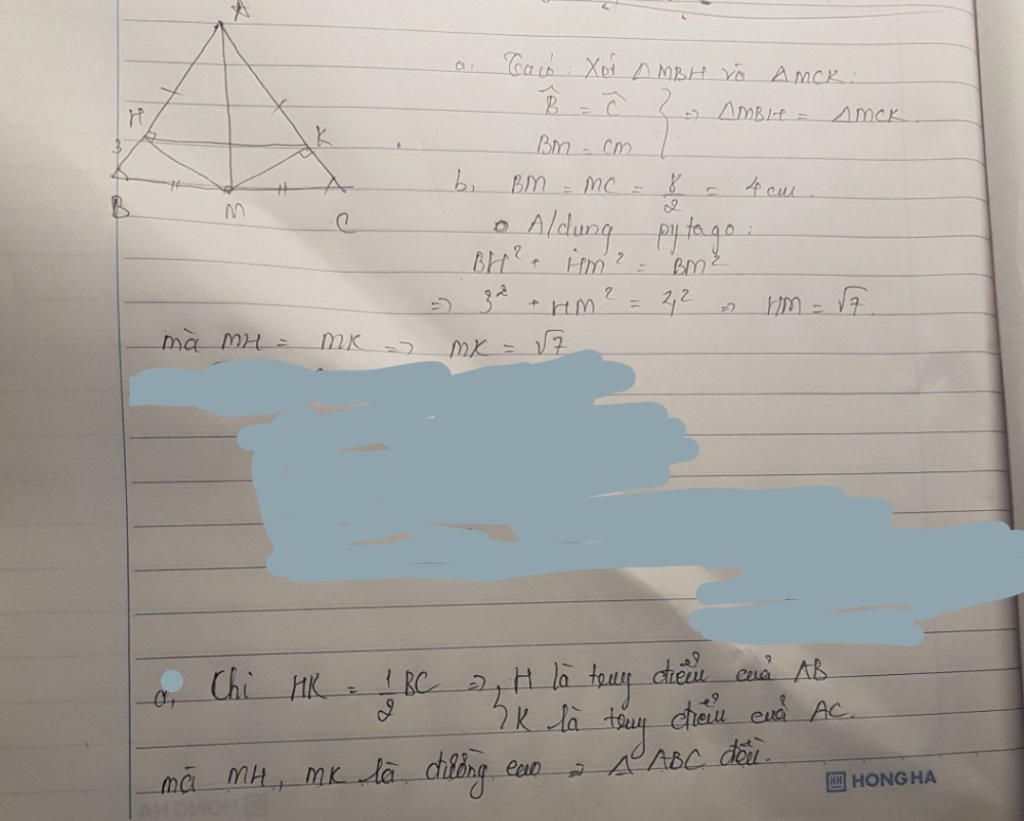 A
H
K
3
B
M
C
a, Ta có: Xét ΔMBH và ΔMCK:
B̂ = Ĉ
BM = CM } => ΔMBH = ΔMCK
b, BM = MC = 8/2 = 4 cm.
A/dụng pytago:
BH² + HM² = BM²
=> 3² + HM² = 4² => HM = √7.
mà MH = MK => MK = √7
a, Chi HK = 1/2 BC => { H là tung điểm của AB
K là tung điểm của AC.
mà MH, MK là đường cao => Δ ABC đều.
HONG HA